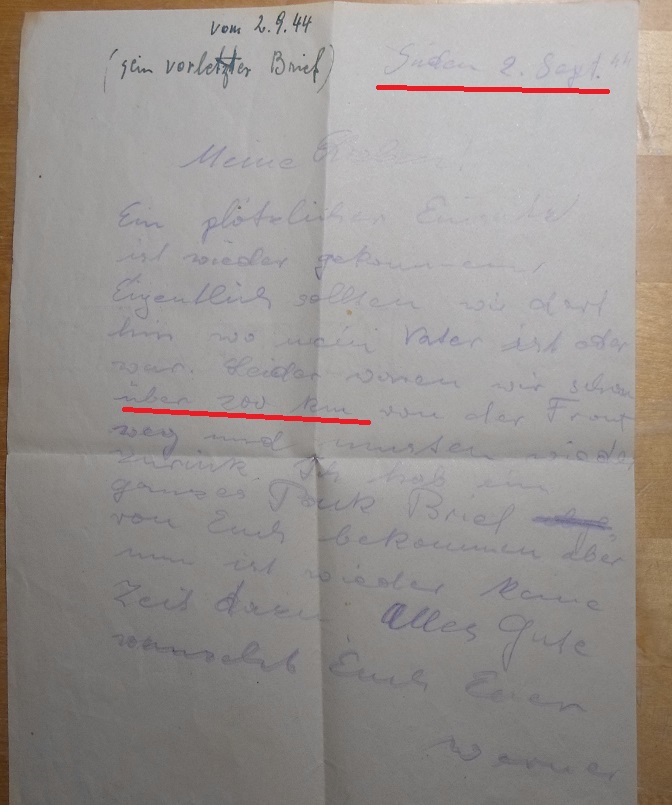 vom 2.9.44
(sein vorletzter Brief)
Süden 2. Sept. 44
Meine Lieben!
Ein plötzlicher Einsatz
ist wieder gekommen,
Eigentlich sollten wir dort
hin wo mein Vater ist oder
war. Leider waren wir schon
über 200 km von der Front
weg und mussten wieder
zurück. Ich hab ein
ganzes Pack Brief
von Euch bekommen aber
nun ist wieder keine
Zeit Alles Gute
wünscht Euch Euer
Werner